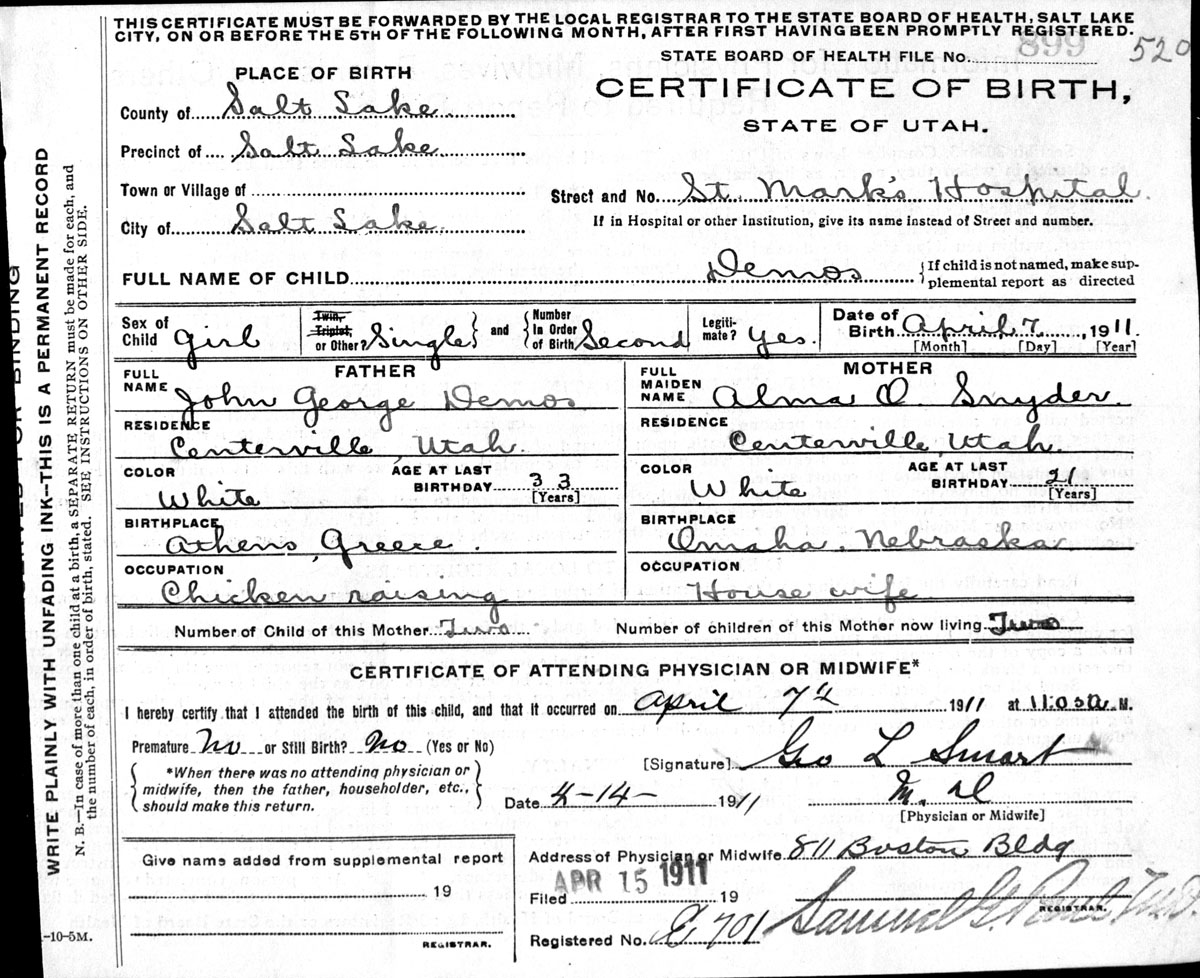 THIS CERTIFICATE MUST BE FORWARDED BY THE LOCAL REGISTRAR TO THE STATE BOARD OF HEALTH, SALT LAKE
CITY, ON OR BEFORE THE 5TH OF THE FOLLOWING MONTH, AFTER FIRST HAVING BEEN PROMPTLY REGISTERED.
STATE BOARD OF HEALTH FILE No. 899 520
PLACE OF BIRTH
CERTIFICATE OF BIRTH,
STATE OF UTAH.
County of Salt Lake
Precinct of Salt Lake
Town or Village of
Street and No. St. Mark's Hospital
City of Salt Lake
If in Hospital or other Institution, give its name instead of Street and number.
FULL NAME OF CHILD Demos {If child is not named, make sup-
plemental report as directed
Sex of Child girl
Twin, Triplet, or Other? Single and Number In Order of Birth Second
Legiti-mate? Yes.
Date of Birth April 7, 1911
[Month] [Day] [Year]
FATHER
FULL NAME John George Demos
RESIDENCE
Centerville, Utah.
COLOR White
AGE AT LAST BIRTHDAY 33
[Years]
BIRTHPLACE
Athens, Greece.
OCCUPATION
Chicken raising
MOTHER
FULL MAIDEN NAME Alma O. Snyder.
RESIDENCE
Centerville, Utah.
COLOR White
AGE AT LAST BIRTHDAY 21
[Years]
BIRTHPLACE
Omaha, Nebraska
OCCUPATION
House wife
Number of Child of this Mother Two Number of children of this Mother now living Two
CERTIFICATE OF ATTENDING PHYSICIAN OR MIDWIFE*
I hereby certify that I attended the birth of this child, and that it occurred on April 7th 1911 at 11:03 a. M.
Premature No or Still Birth? No (Yes or No)
[Signature] Geo L Smart
*When there was no attending physician or
midwife, then the father, householder, etc.,
should make this return.
Date 4-14- 1911
M. D
[Physician or Midwife]
Give name added from supplemental report
19
REGISTRAR.
Address of Physician or Midwife 811 Boston Bldg
Filed APR 15 1911 19
REGISTRAR.
Registered No. E 701 Samuel G.
-10-5M.
WRITE PLAINLY WITH UNFADING INK—THIS IS A PERMANENT RECORD
N. B.—In case of more than one child at a birth, a SEPARATE RETURN must be made for each, and
the number of each, in order of birth, stated. SEE INSTRUCTIONS ON OTHER SIDE.
FOR BINDING